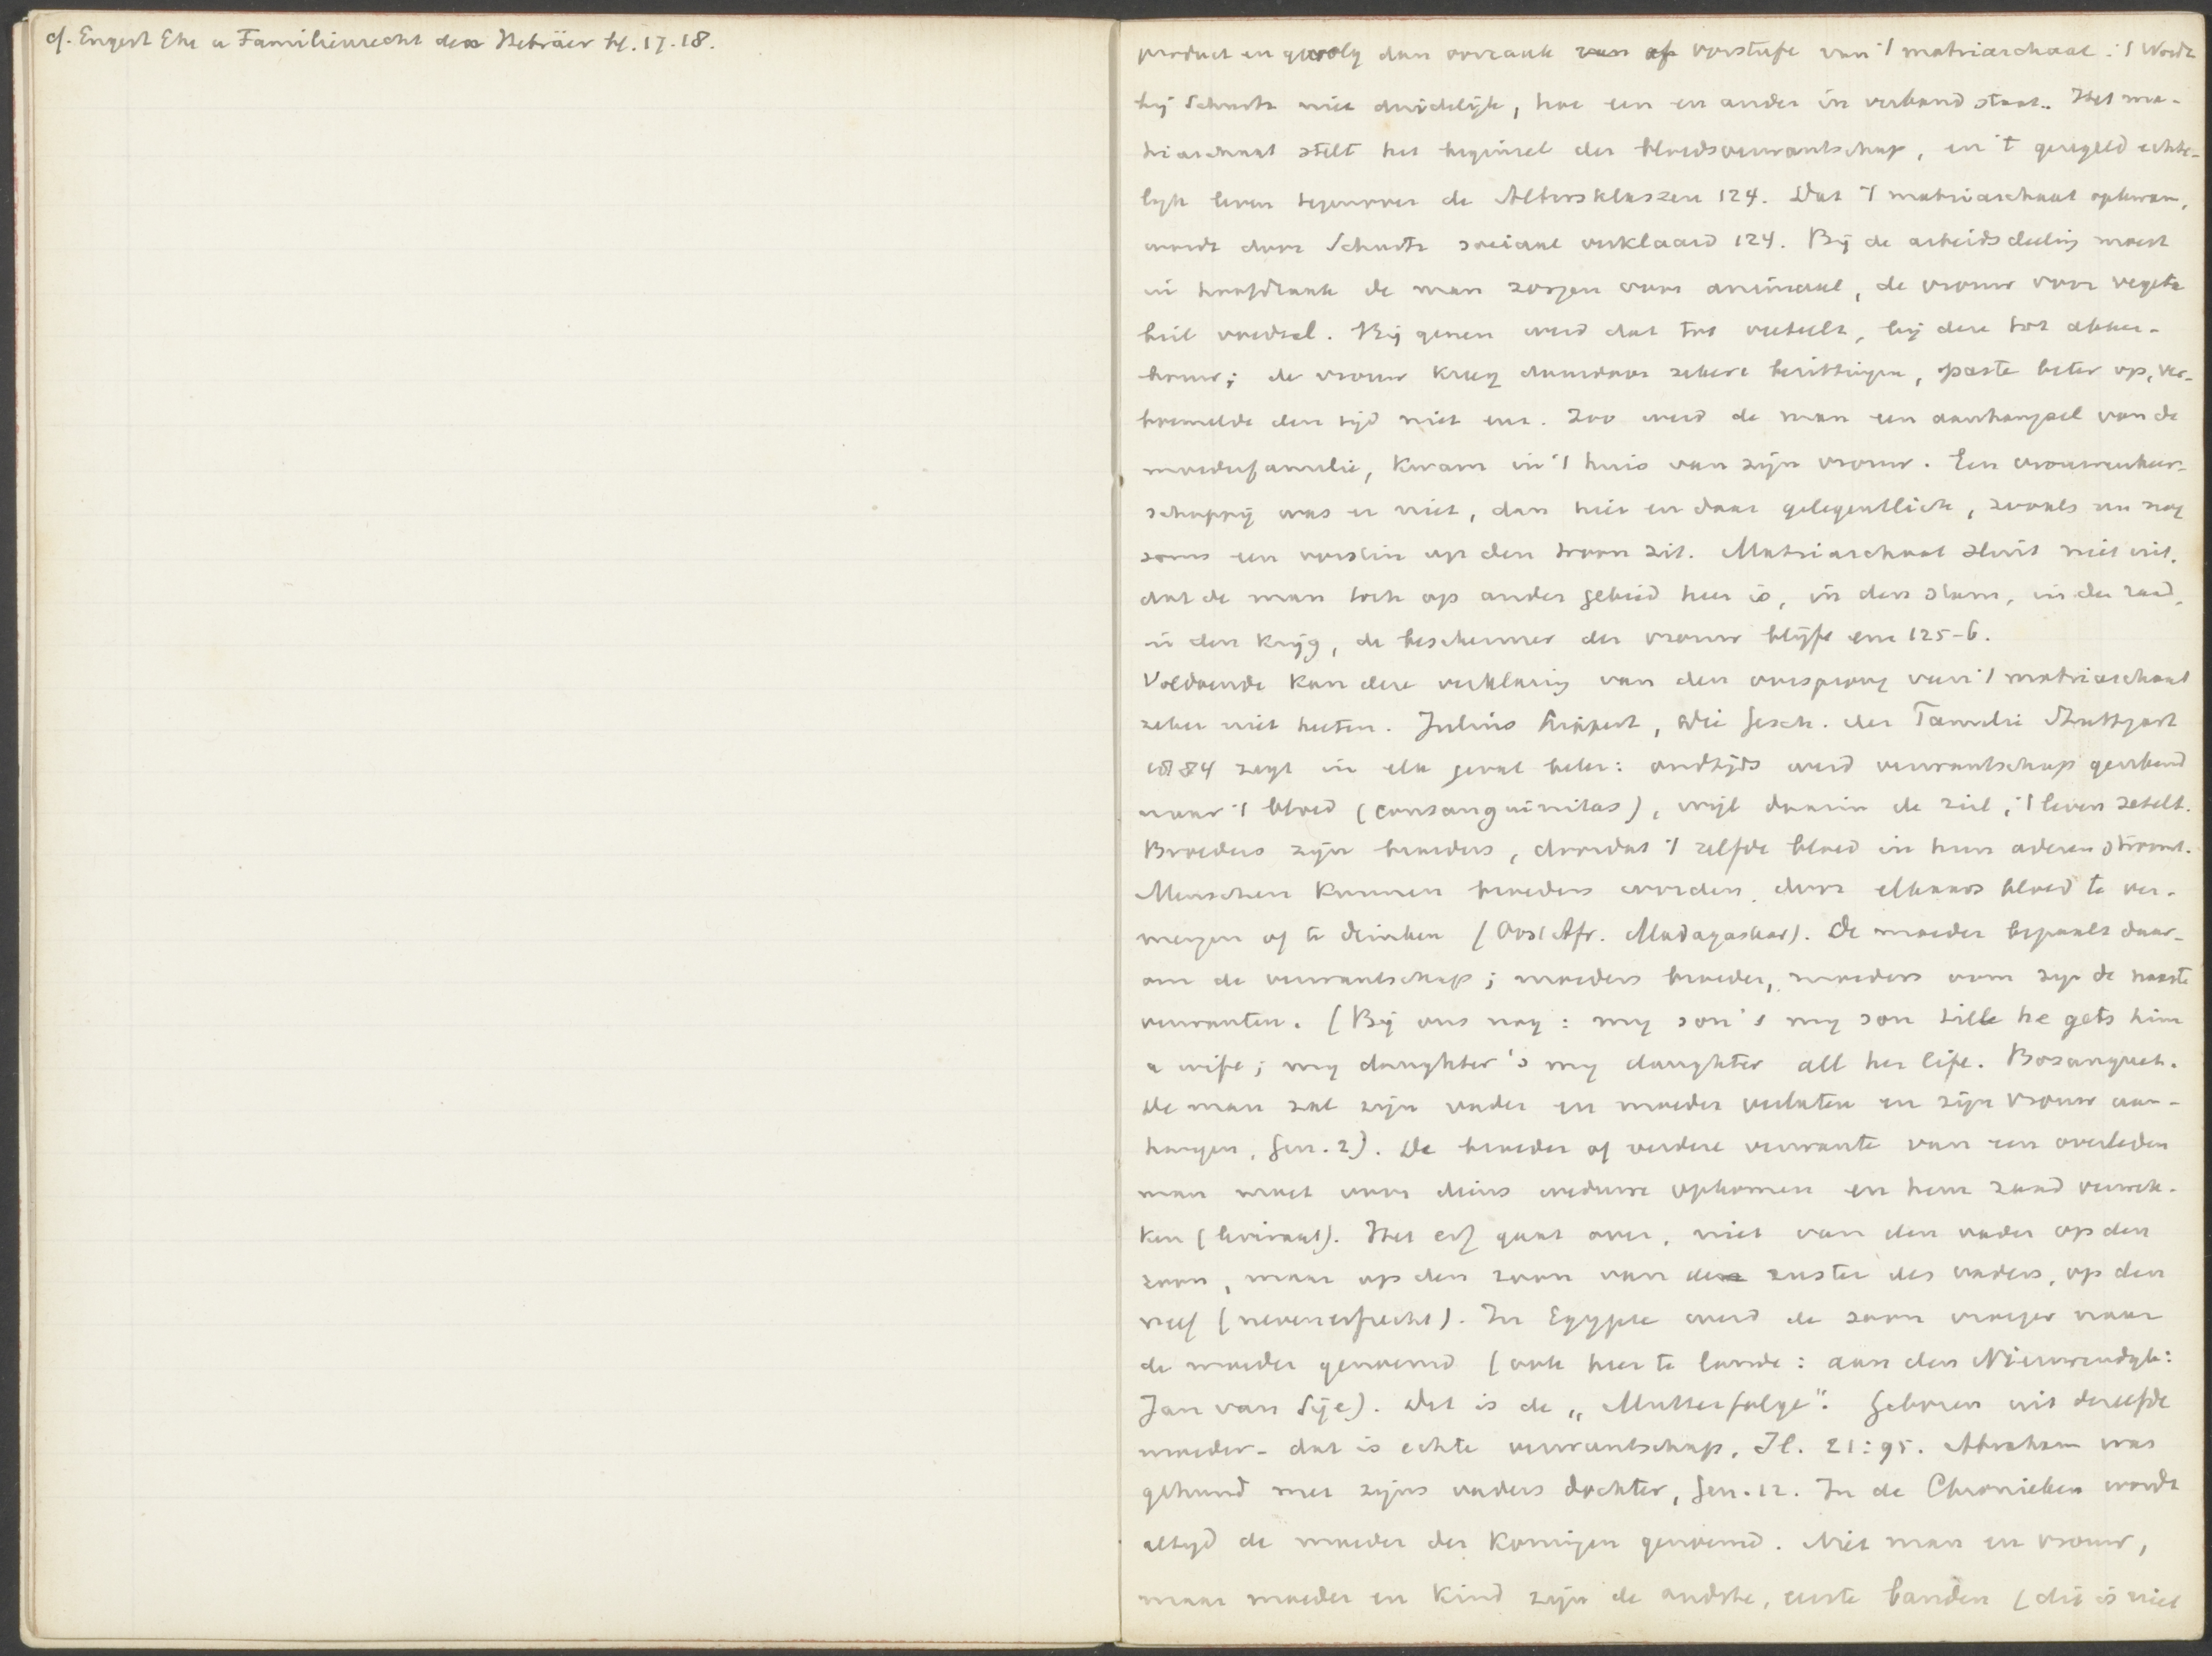 cf. Engert Ehe u Familienrecht der Hebräer bl. 17. 18.
product en gevolg dan oorzaak van of vorstufe van 't matriarchaat. 't Wordt
bij Schurtz niet duidelijk, hoe een en ander in verband staat. Het ma-
triarchaat stelt het beginsel der bloedsverwantschap, en 't geregeld echte-
lijk leven tegenover de Altersklassen 124. Dat 't matriarchaat opkwam,
wordt door Schurtz sociaal verklaard 124. Bij de arbeidsdeeling moest
in hoofdzaak de man zorgen voor animaal, de vrouw voor vegeta
biel voedsel. Bij genen werd dat tot veeteelt, bij deze tot akker-
bouw; de vrouw kreeg daardoor zekere bezittingen, paste beter op, ver-
bremelde den tijd niet enz. Zoo werd de man een aanhangsel van de
moederfamilie, kwam in 't huis van zijn vrouw. Een vrouwenheer-
schappij was er niet, dan hier en daar gelegentlich, zooals nu nog
soms een vorstin op den troon zit. Matriarchaat sluit niet uit,
dat de man toch op ander gebied heer is, in den stam, in den raad,
in den krijg, de beschermer der vrouw blijft enz 125-6.
Voldoende kan deze verklaring van den oorsprong van 't matriarchaat
zeker niet heeten. Julius Lippert, Die Gesch. der Familie Stuttgart
1884 zegt in elk geval beter: oudtijds werd verwantschap gerekend
naar 't bloed (consanguinitas), wijl daarin de ziel, 't leven zetelt.
Broeders zijn broeders, doordat 't zelfde bloed in hun aderen stroomt.
Menschen kunnen broeders worden door elkaars bloed te ver-
mengen of te drinken (Oost Afr. Madagaskar). De moeder bepaalt daar-
om de verwantschap; moeders broeder, moeders oom zijn de naaste
verwanten. (Bij ons nog: my son's my son till he gets him
a wife; my daughter's my daughter all her life. Bosanquet.
De man zal zijn vader en moeder verlaten en zijn vrouw aan-
hangen, Gen. 2). De broeder of verdere verwante van een overleden
man moet voor diens weduwe opkomen en hem zaad verwek-
ken (leviraat). Het erf gaat over, niet van den vader op den
zoon, maar op den zoon van de zuster des vaders, op den
neef (nevenerfrecht). In Egypte werd de zoon vroeger naar
de moeder genoemd (ook hier te lande: aan den Nieuwendijk:
Jan van Sije). Dat is de „Mutterfolge". Geboren uit dezelfde
moeder - dat is echte verwantschap, Il. 21:95. Abraham was
gehuwd met zijns vaders dochter, Gen. 12. In de Chronieken wordt
altijd de moeder der koningen genoemd. Niet man en vrouw,
maar moeder en kind zijn de oudste, eerste banden (dit is niet